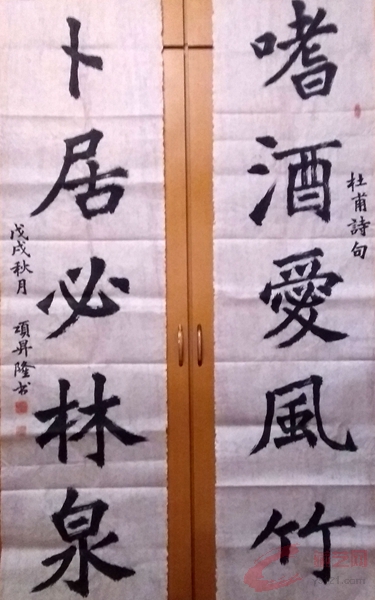 嗜酒愛風竹
杜甫詩句
卜居必林泉
戊戌秋月 項昇隆书